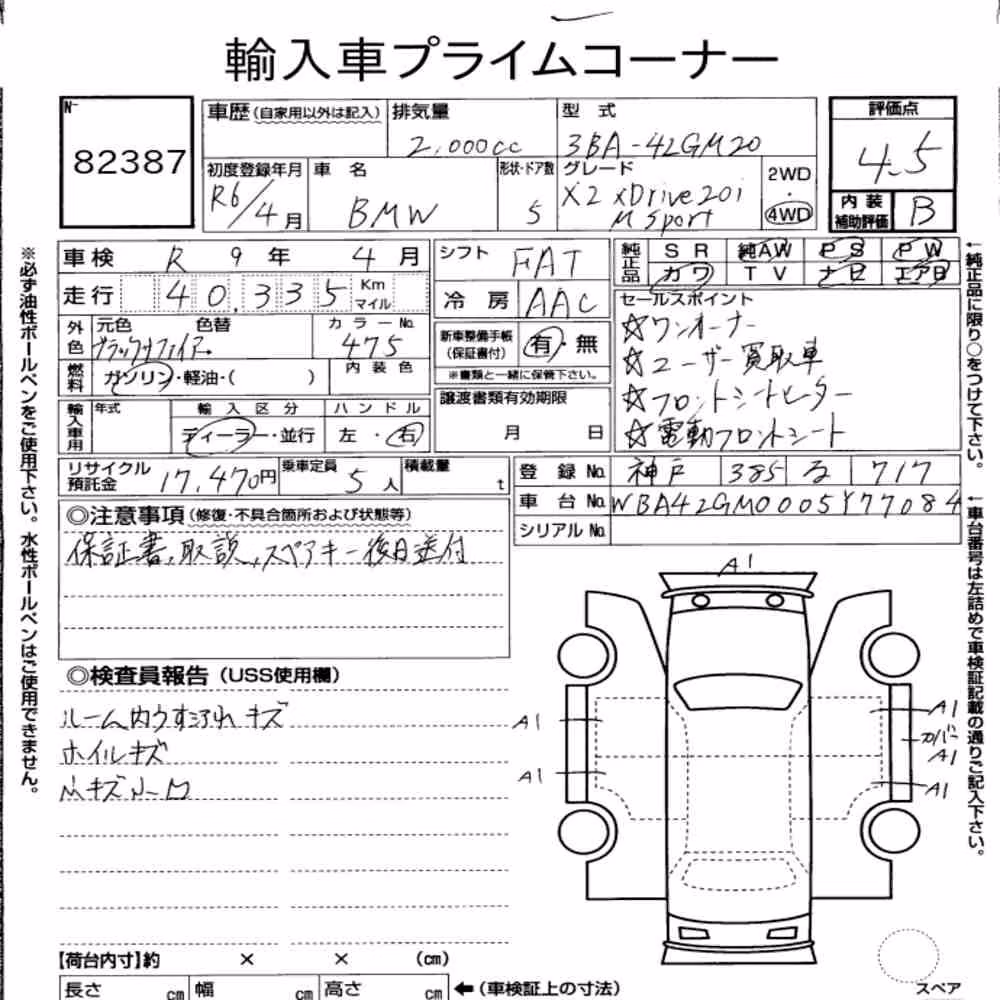 輸入車プライムコーナー
No 82387
車歴(自家用以外は記入) 排気量 2,000cc 型式 3BA-42GM20
評価点 4.5
初度登録年月 R6/4月 車名 BMW 形状・ドア数 5 グレード X2 xDrive20i M Sport 2WD 4WD
内装補助評価 B
車検 R 9年 4月
走行 40,335 Km マイル
外色 元色 色替 ブラックサファイア カラーNo. 475
燃料 ガソリン・軽油・( ) 内装色
輸入車用 年式 輸入区分 ディーラー・並行 ハンドル 左・右
リサイクル預託金 17,470円 乗車定員 5人 積載量 t
シフト FAT
冷房 AAC
新車整備手帳(保証書付) 有・無
※書類と一緒に保管下さい。
譲渡書類有効期限 月 日
純正品 SR 純AW PS PW
カワ TV ナビ エアB
セールスポイント
☆ワンオーナー
☆ユーザー買取車
☆フロントシートヒーター
☆電動フロントシート
登録No. 神戸 385 る 717
車台No. WBA42GM0005Y77084
シリアルNo.
◎注意事項(修復・不具合箇所および状態等)
保証書、取説、スペアキー後日送付
◎検査員報告(USS使用欄)
ルーム内うすスレ キズ
ホイルキズ
小キズ
A1
A1
A1
A1
カバー
A1
A1
【荷台内寸】約 × × (cm)
長さ cm 幅 cm 高さ cm ←(車検証上の寸法)
スペア
※必ず油性ボールペンをご使用下さい。水性ボールペンはご使用できません。
←純正品に限り○をつけて下さい。
←車台番号は左詰めで車検証記載の通りご記入下さい。